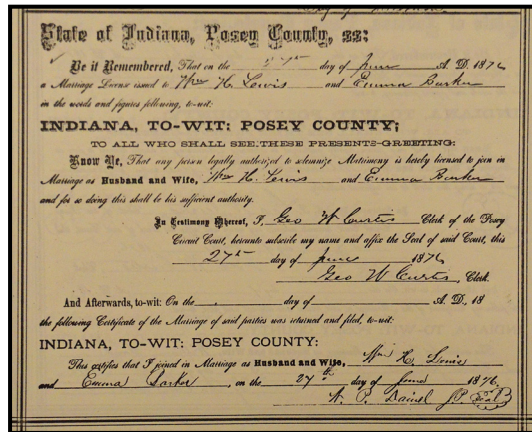 State of Indiana, Posey County, ss:
Be it Remembered, That on the 27th day of June A. D. 1876
a Marriage License issued to Wm H. Lewis and Emma Barker
in the words and figures following, to-wit:
INDIANA, TO-WIT: POSEY COUNTY;
TO ALL WHO SHALL SEE THESE PRESENTS-GREETING:
Know Ye, That any person legally authorized to solemnize Matrimony is hereby licensed to join in
Marriage as Husband and Wife, Wm H. Lewis and Emma Barker
and for so doing this shall be his sufficient authority.
In Testimony Whereof, I, Geo W Curtis Clerk of the Posey
Circuit Court, hereunto subscribe my name and affix the Seal of said Court, this
27th day of June 1876
Geo W Curtis, Clerk.
And Afterwards, to-wit: On the day of A. D., 18
the following Certificate of the Marriage of said parties was returned and filed, to-wit:
INDIANA, TO-WIT: POSEY COUNTY:
This certifies that I joined in Marriage as Husband and Wife, Wm H. Lewis
and Emma Barker, on the 27th day of June 1876.
P. Daniel J.P.